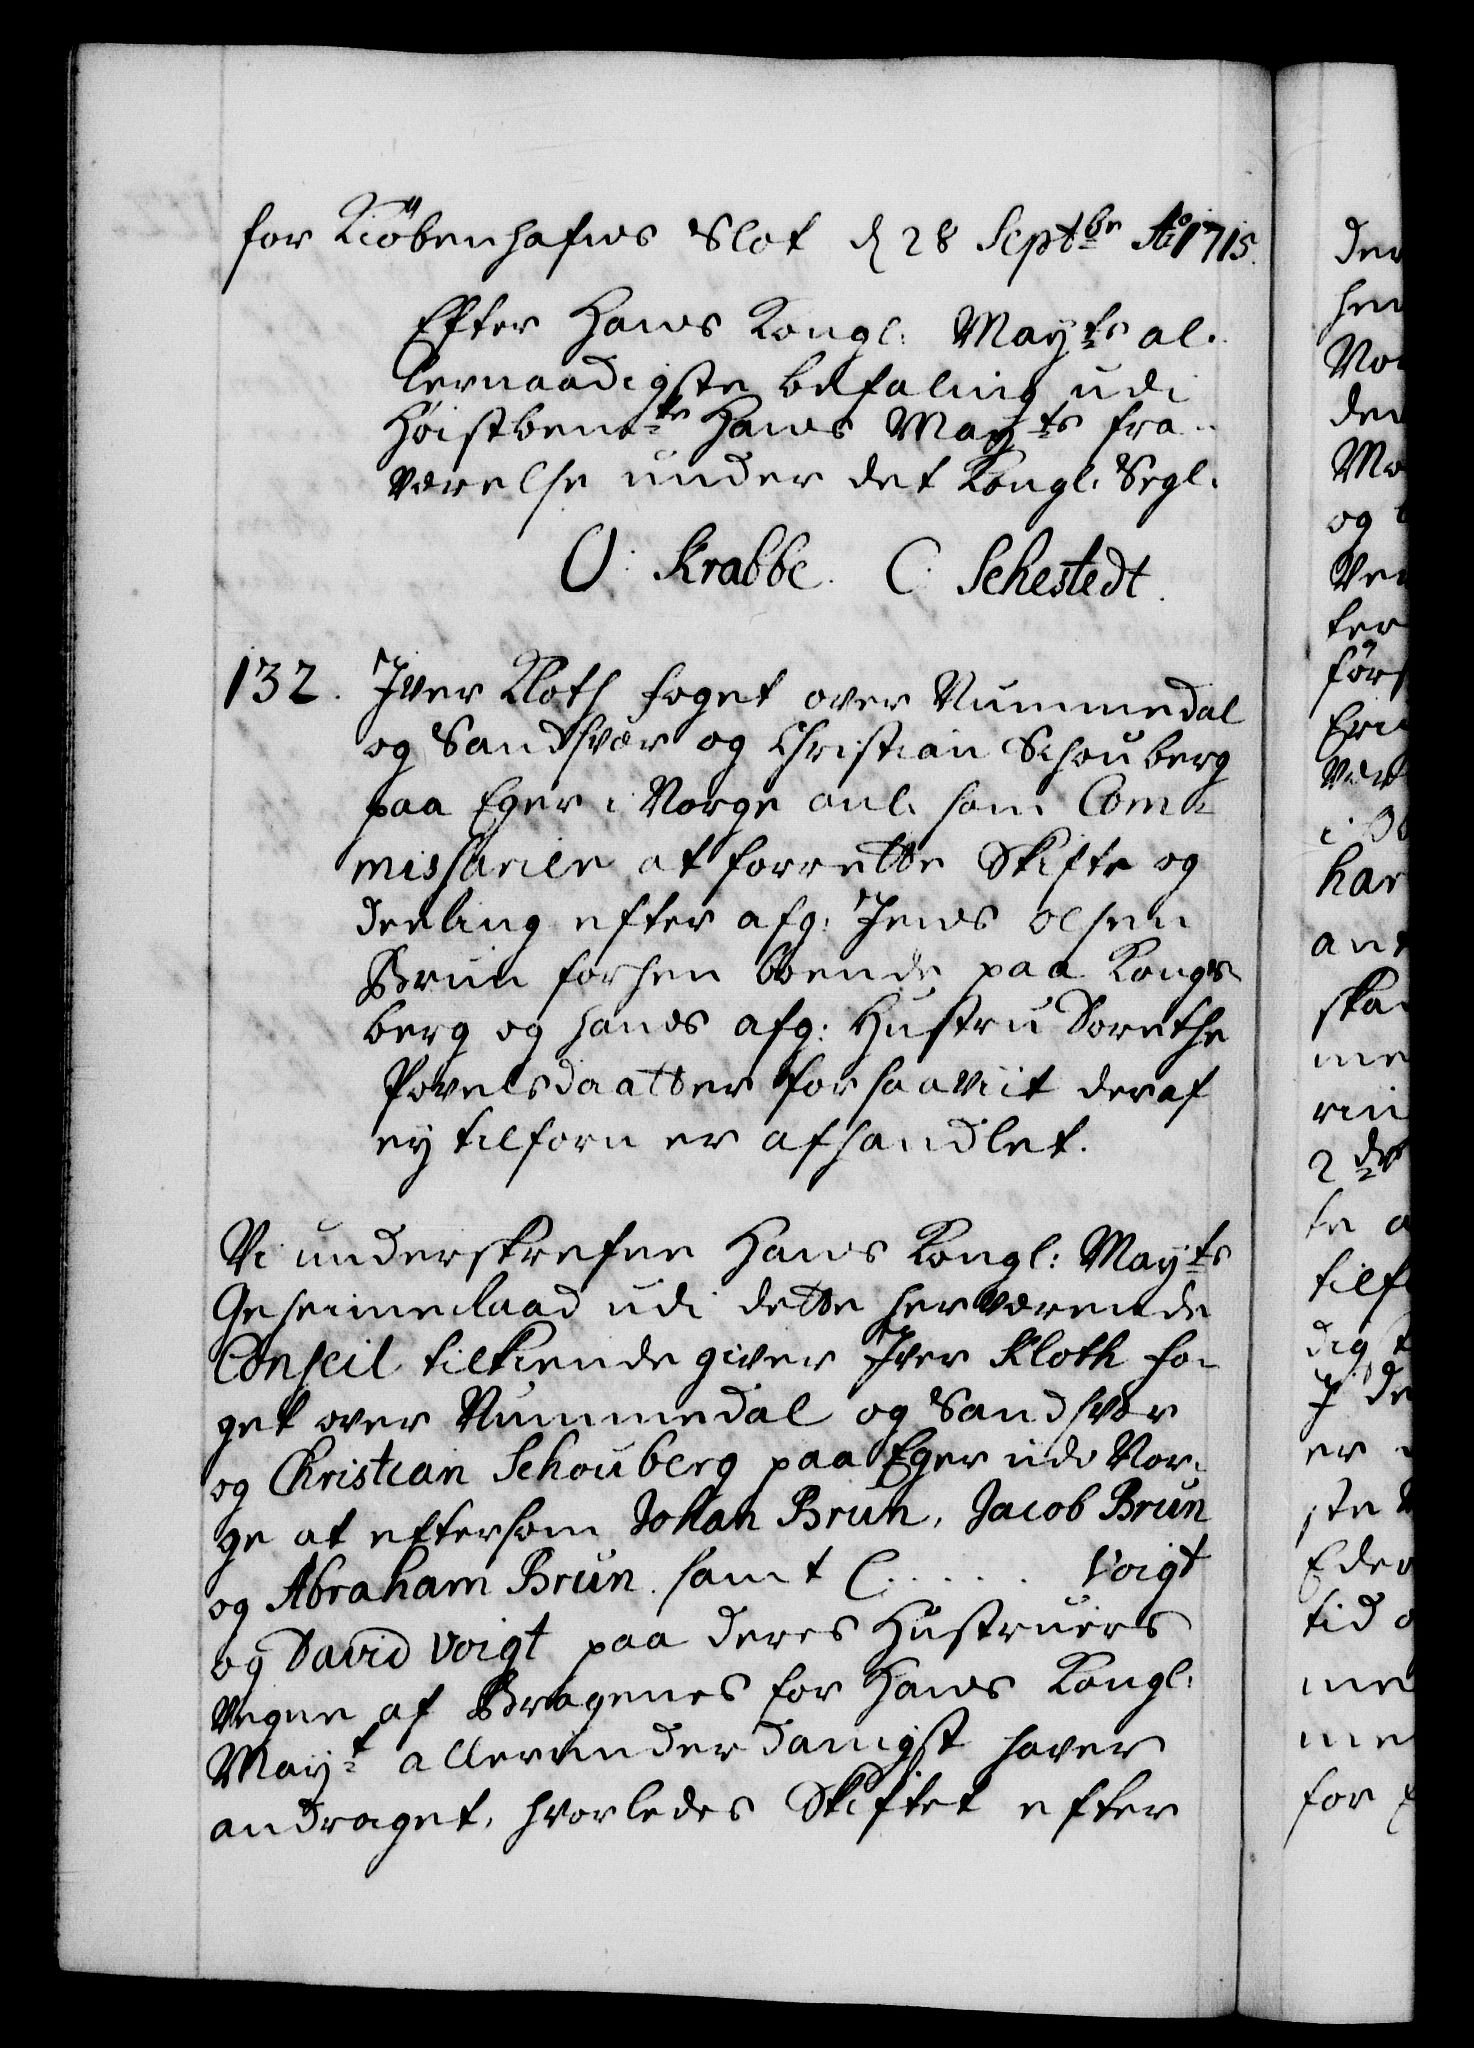 for Kiöbenhafns Slot d 28 Septbr Ao 1715.
Efter Hans Kongl: Mayts al-
lernaadigste befaling udi
Høistbemte Hans Mayts fra-
værelse under det Kongl. Segl.
O. Krabbe. C. Sehestedt.
132. Iver Kloth foget over Nummedal
og Sandsvær og Christian Schouberg
paa Eger i Norge anl. som Com-
missarier at forrette Skifte og
deeling efter afg: Jens Olsen
Brun forhen boende paa Kongs-
berg og hans afg: Hustru Dorethe
Povelsdaatter forsaaviit deraf
ey tilforn er afhandlet.
Vi underskrefne Hans Kongl: Mayts
Geheimeraad udi dette herværende
Conseil tilkiende giver Iver Kloth fo-
get over Nummedal og Sandsvær
og Christian Schouberg paa Eger udi Nor-
ge at eftersom Johan Brun, Jacob Brun
og Abraham Brun. samt C. . . . . . Voigt
og David Voigt paa deres Hustruers
vegne af Bragenes for Hans Kongl.
Mayt allerunderdanigst haver
andraget, hvorledes Skiftet efter